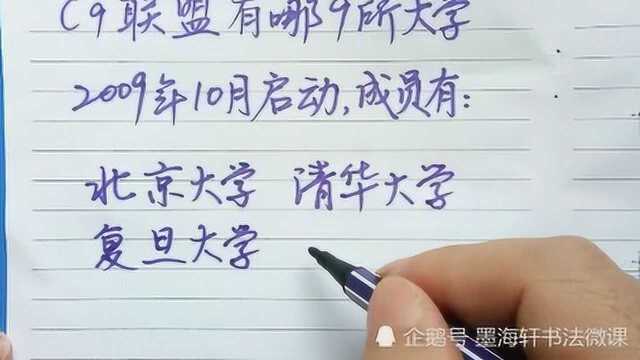 C9联盟有哪9所大学
2009年10月启动,成员有:
北京大学 清华大学
复旦大学
企鹅号 墨海轩书法微课